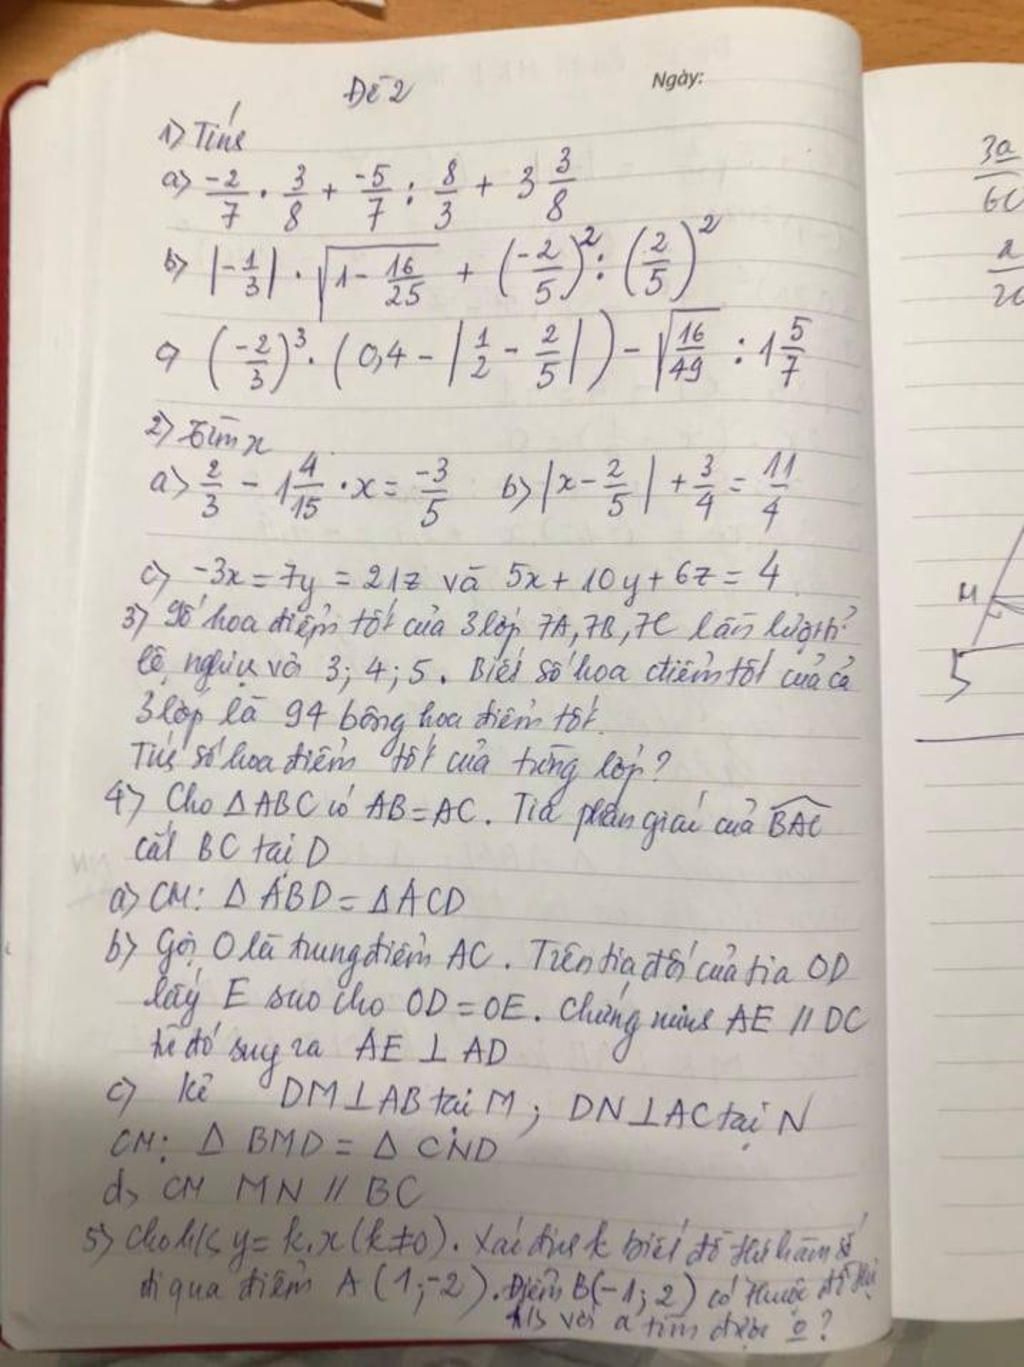 Đề 2
Ngày:
1) Tính
a) \frac{-2}{7} \cdot \frac{3}{8} + \frac{-5}{7} : \frac{8}{3} + 3\frac{3}{8}
b) |-\frac{1}{3}| \cdot \sqrt{1-\frac{16}{25}} + (\frac{-2}{5})^2 : (\frac{2}{5})^2
c) (\frac{-2}{3})^3 \cdot (0,4 - |\frac{1}{2} - \frac{2}{5}|) - \sqrt{\frac{16}{49}} : 1\frac{5}{7}
2) Tìm x
a) \frac{2}{3} - 1\frac{4}{15} \cdot x = \frac{-3}{5} b) |x - \frac{2}{5}| + \frac{3}{4} = \frac{11}{4}
c) -3x = 7y = 21z và 5x + 10y + 6z = 4
3) Số hoa điểm tốt của 3 lớp 7A, 7B, 7C lần lượt tỉ
lệ nghịch với 3; 4; 5. Biết số hoa điểm tốt của cả
3 lớp là 94 bông hoa điểm tốt.
Tính số hoa điểm tốt của từng lớp?
4) Cho ΔABC có AB = AC. Tia phân giác của \widehat{BAC}
cắt BC tại D
a) CM: ΔABD = ΔACD
b) Gọi O là trung điểm AC. Trên tia đối của tia OD
lấy E sao cho OD = OE. Chứng minh AE // DC
từ đó suy ra AE ⊥ AD
c) Kẻ DM ⊥ AB tại M; DN ⊥ AC tại N
CM: Δ BMD = Δ CND
d) CM MN // BC
5) Cho h/s y = k.x (k≠0). Xác định k biết đồ thị hàm số
đi qua điểm A (1; -2). Điểm B(-1; 2) có thuộc đồ thị
h/s với a tìm được o?
3a
M